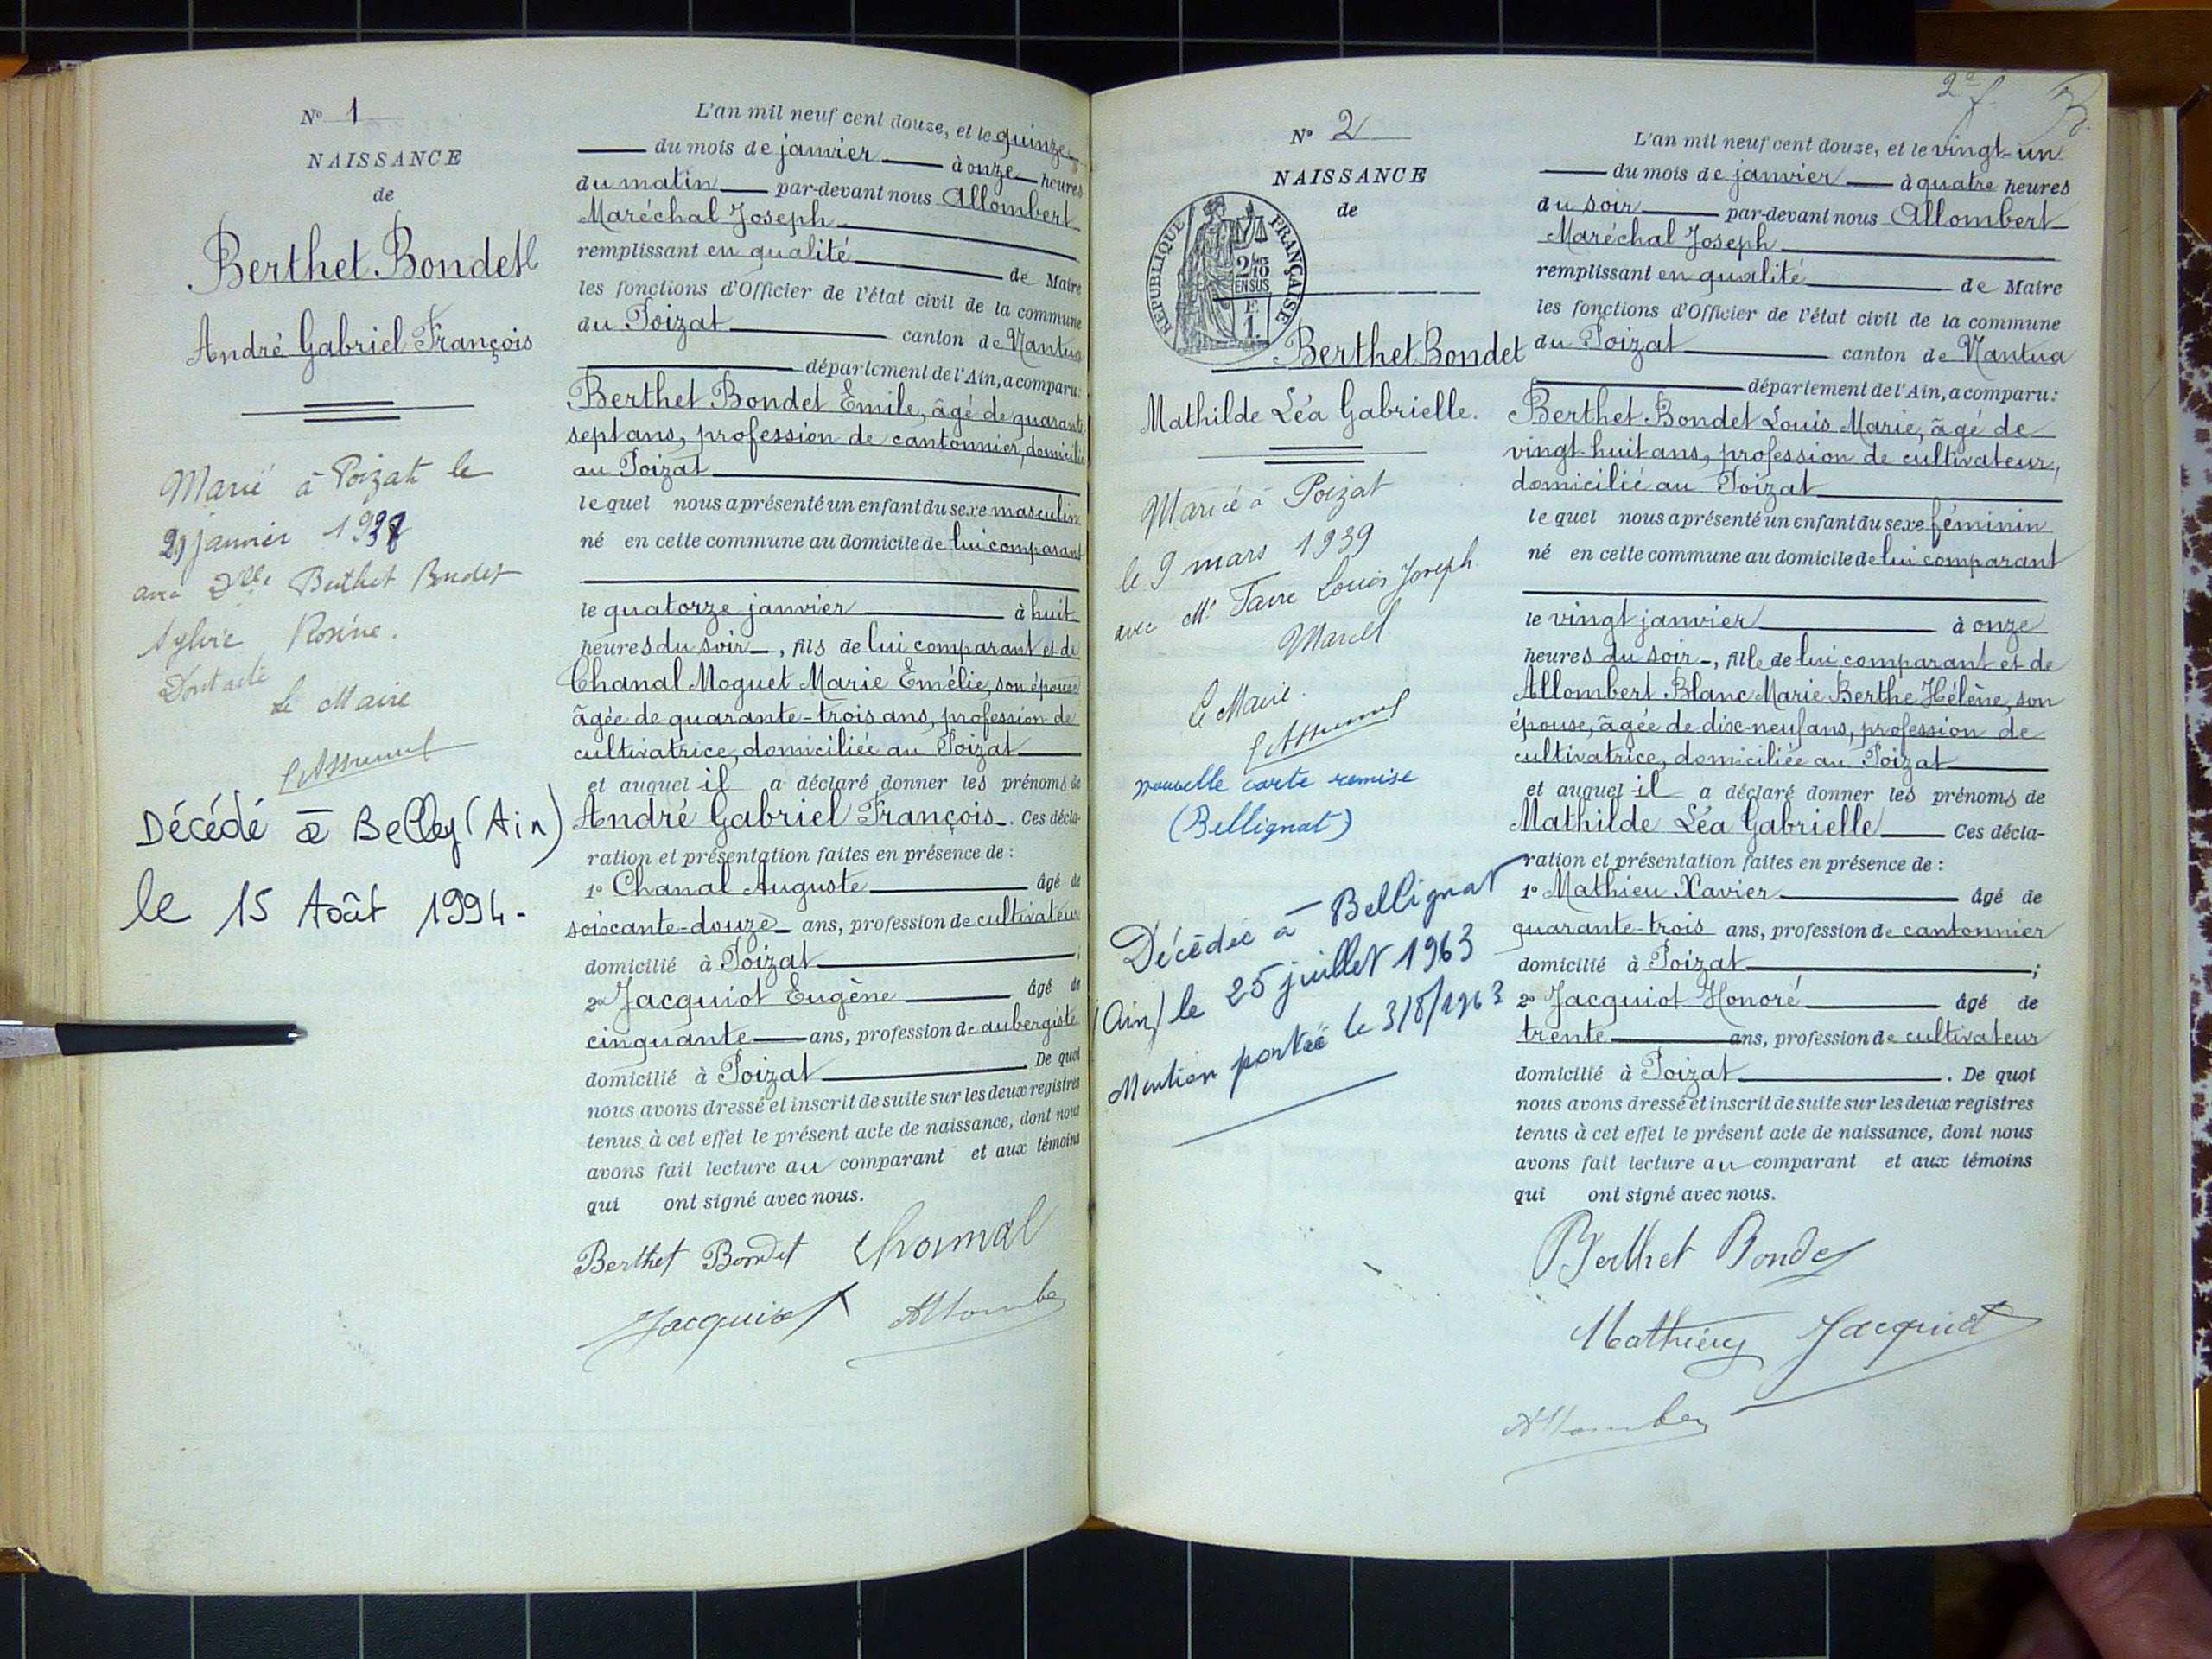 N° 1
NAISSANCE
de
Berthet Bondet
André Gabriel François
Marié à Poizat le
janvier
avec Dlle Berthet Bondet
Sylvie Rosine.
Dont acte
Le Maire
Décédé à Belley (Ain)
le 15 Août 1994-
L'an mil neuf cent douze, et le quinze
du mois de janvier à onze heures
du matin par-devant nous Allombert
Maréchal Joseph
remplissant en qualité de Maire
les fonctions d'Officier de l'état civil de la commune
du Poizat canton de Nantua
département de l'Ain, a comparu:
Berthet Bondet Emile, âgé de quarante
sept ans, profession de cantonnier, domicilié
au Poizat
lequel nous a présenté un enfant du sexe masculin
né en cette commune au domicile de lui comparant
le quatorze janvier à huit
heures du soir, fils de lui comparant et de
Chanal Moguet Marie Emélie, son épouse
âgée de quarante-trois ans, profession de
cultivatrice, domiciliée au Poizat
et auquel il a déclaré donner les prénoms de
André Gabriel François. Ces décla-
ration et présentation faites en présence de :
1° Chanal Auguste âgé de
soixante-douze ans, profession de cultivateur
domicilié à Poizat ;
2° Jacquiot Eugène âgé de
cinquante ans, profession de aubergiste
domicilié à Poizat. De quoi
nous avons dressé et inscrit de suite sur les deux registres
tenus à cet effet le présent acte de naissance, dont nous
avons fait lecture au comparant et aux témoins
qui ont signé avec nous.
Berthet Bondet Chanal
Jacquiot Allombert
2e f.
N° 2
NAISSANCE
de
RÉPUBLIQUE FRANÇAISE
2/10
EN SUS
F
1.
Berthet Bondet
Mathilde Léa Gabrielle.
Mariée à Poizat
le 9 mars 1939
avec Mr Favre Louis Joseph
Marcel
Le Maire.
nouvelle carte remise
(Bellignat)
Décédée à Bellignat
(Ain) le 25 juillet 1963
Mention portée le 3/8/1963
L'an mil neuf cent douze, et le vingt-un
du mois de janvier à quatre heures
du soir par-devant nous Allombert
Maréchal Joseph
remplissant en qualité de Maire
les fonctions d'Officier de l'état civil de la commune
du Poizat canton de Nantua
département de l'Ain, a comparu:
Berthet Bondet Louis Marie, âgé de
vingt-huit ans, profession de cultivateur,
domicilié au Poizat
lequel nous a présenté un enfant du sexe féminin
né en cette commune au domicile de lui comparant
le vingt janvier à onze
heures du soir, fille de lui comparant et de
Allombert Blanc Marie Berthe Hélène, son
épouse, âgée de dix-neuf ans, profession de
cultivatrice, domiciliée au Poizat
et auquel il a déclaré donner les prénoms de
Mathilde Léa Gabrielle Ces décla-
ration et présentation faites en présence de :
1° Mathieu Xavier âgé de
quarante-trois ans, profession de cantonnier
domicilié à Poizat ;
2° Jacquiot Honoré âgé de
trente ans, profession de cultivateur
domicilié à Poizat. De quoi
nous avons dressé et inscrit de suite sur les deux registres
tenus à cet effet le présent acte de naissance, dont nous
avons fait lecture au comparant et aux témoins
qui ont signé avec nous.
Berthet Bondet
Mathieu Jacquiot
Allombert